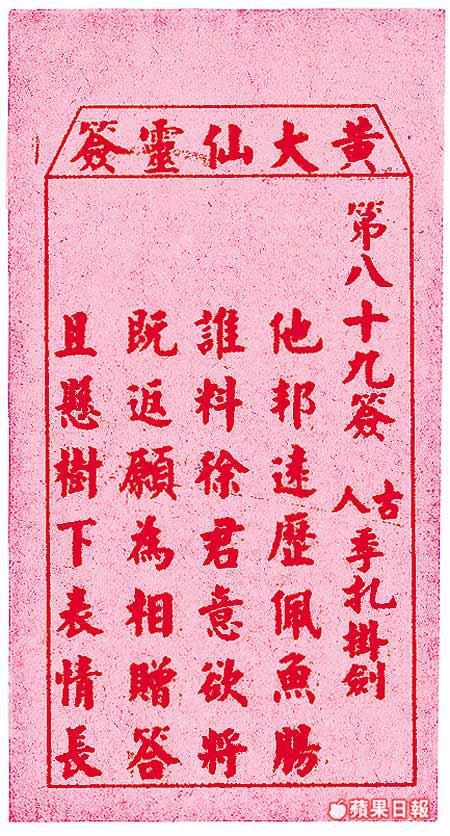 黃大仙靈簽
第八十九簽 古人 季扎掛劍
他邦遠歷佩魚腸
誰料徐君意欲將
既返願為相贈答
且懸樹下表情長
蘋果日報